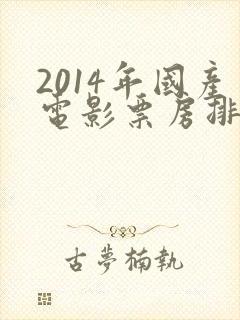 2014年國產
電影票房排
古夢楠執